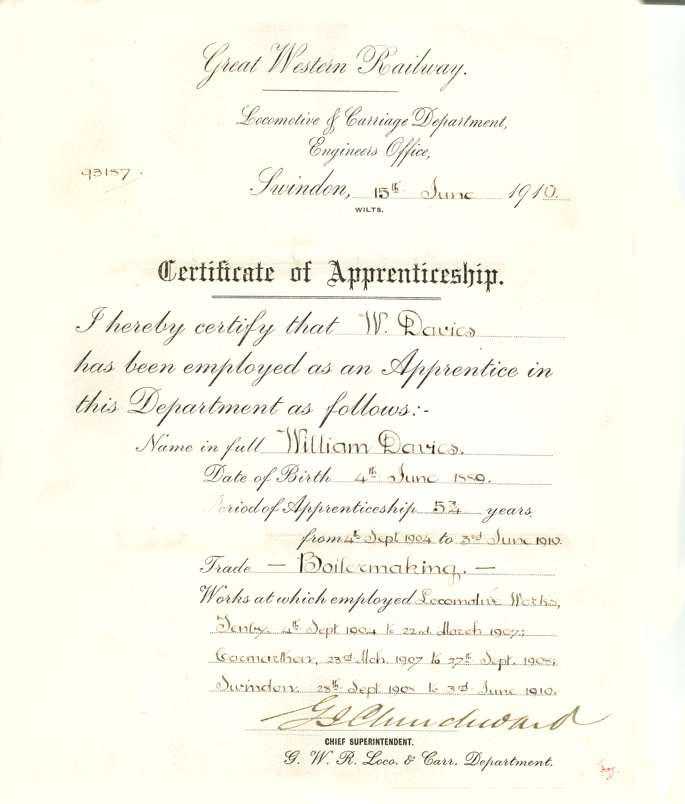 Great Western Railway.
Locomotive & Carriage Department,
Engineers Office,
93157.
Swindon, 15th June 1910.
WILTS.
Certificate of Apprenticeship.
I hereby certify that W. Davies
has been employed as an Apprentice in
this Department as follows:-
Name in full William Davies.
Date of Birth 4th June 1889.
Period of Apprenticeship 5¾ years.
from 4th Sept 1904 to 3rd June 1910.
Trade — Boilermaking. —
Works at which employed Locomotive Works,
Tenby. 4th Sept 1904 to 22nd March 1907;
Carmarthen, 23rd Mch. 1907 to 27th Sept. 1908;
Swindon. 28th Sept 1908 to 3rd June 1910.
G J Churchward
CHIEF SUPERINTENDENT.
G. W. R. Loco. & Carr. Department.